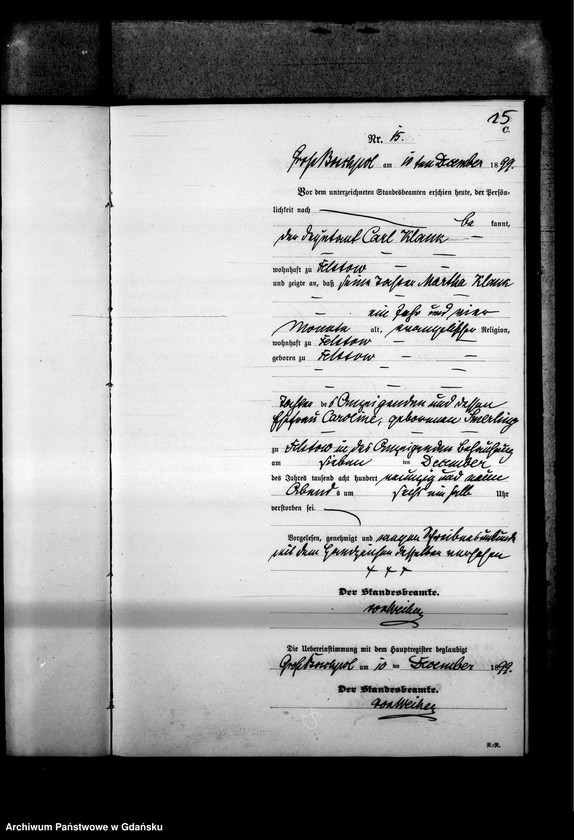 15
C.
Nr. 15.
Groß Boschpol am 10 ten December 1899.
Vor dem unterzeichneten Standesbeamten erschien heute, der Persön-
lichkeit nach
be kannt,
der Deputant Carl Klank
wohnhaft zu Felstow
und zeigte an, daß seine Tochter Martha Klank
ein Jahr und vier
Monate alt, evangelischer Religion,
wohnhaft zu Felstow
geboren zu Felstow
Tochter des Anzeigenden und dessen
Ehefrau Caroline, geborenen
zu Felstow in des Anzeigenden Behausung
am sieben ten December
des Jahres tausend acht hundert neunzig und neun
Abends um sechs ein halb Uhr
verstorben sei.
Vorgelesen, genehmigt und wegen Schreibensunkunde
mit dem Handzeichen desselben versehen
+ + +
Der Standesbeamte.
von Weiher
Die Uebereinstimmung mit dem Hauptregister beglaubigt
Groß Boschpol am 10 ten December 1899.
Der Standesbeamte.
von Weiher
R.-R.
Archiwum Państwowe w Gdańsku